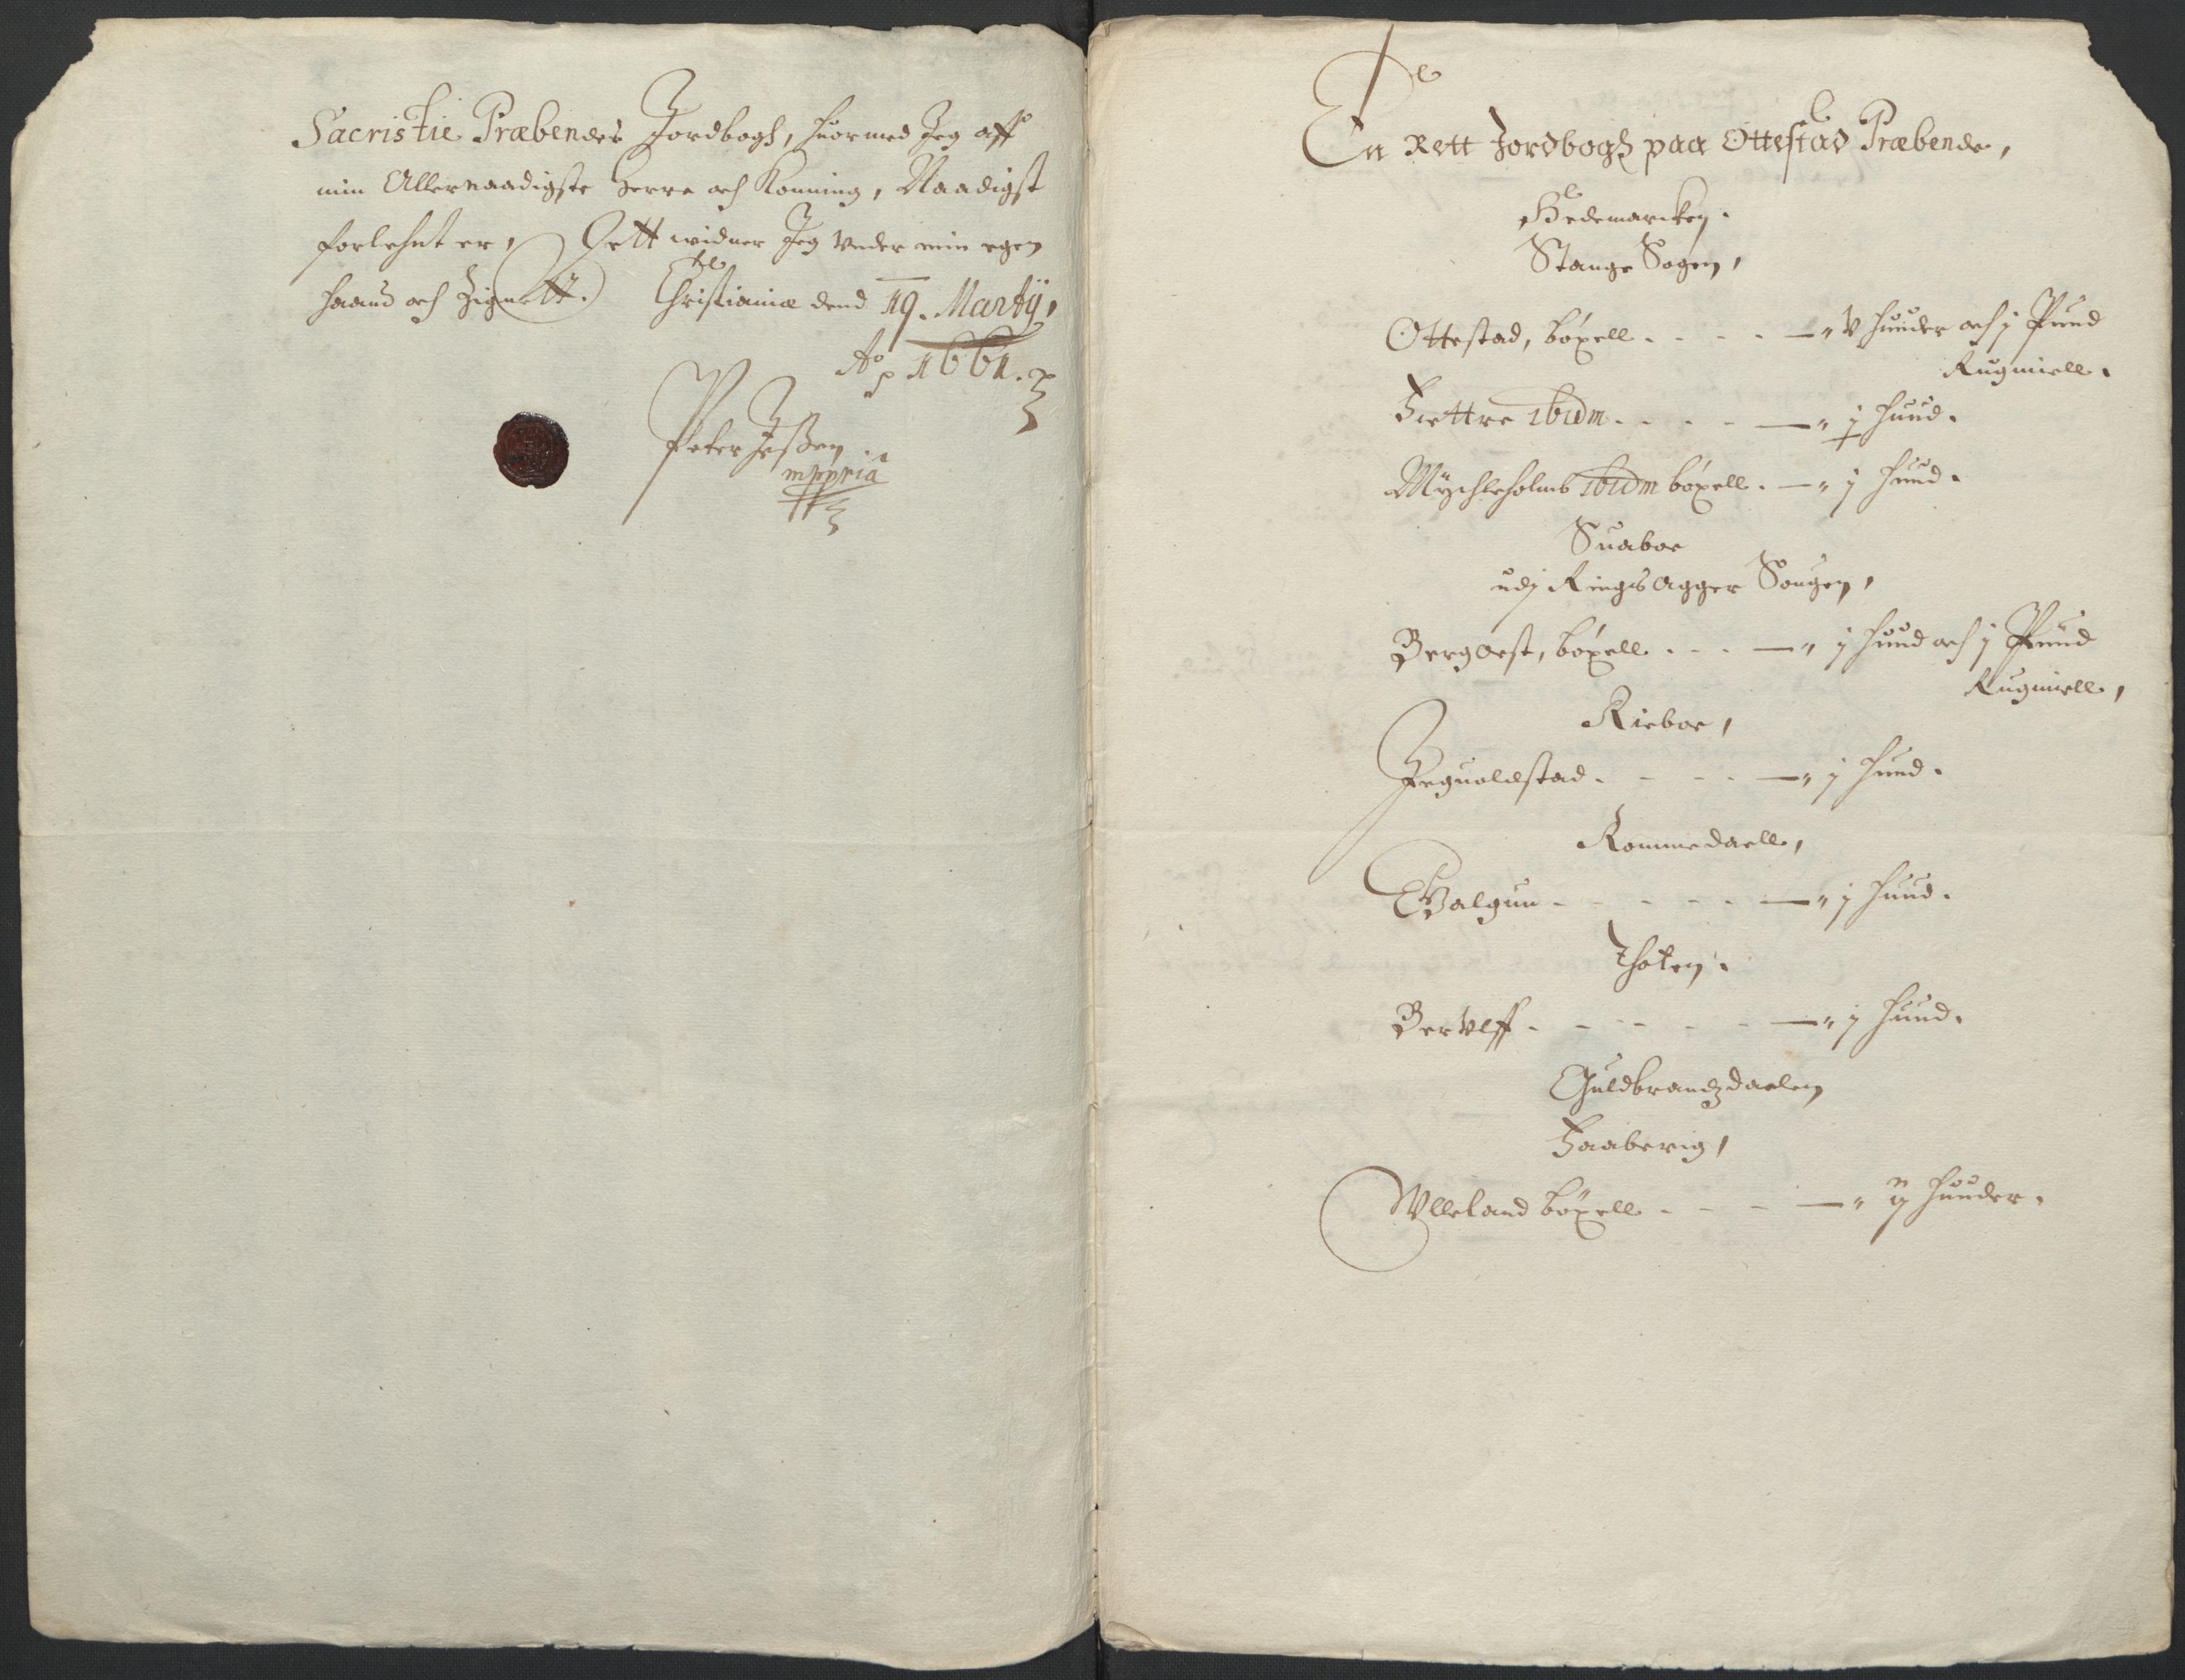 Sacristie Præbendes Jordbogh, huormed Jeg aff
min Allernaadigste Herre och Konning, Naadigst
forlehnt er, Dett widner Jeg Vnder min egen
haand och Zignett. Christianiæ dend 19. Martij,
Ao 1661.
Peter Jessen
mppria
En Rett Jordbogh paa Ottestad Præbende,
Hedemarcken.
Stange Sogen,
Ottestad, böxell - - - - — " V huuder och j Pund
Rugmiell.
Tiettre Ibidm - - - - — " j huud.
Mychleholms Ibidm böxell. — " j huud.
Suaboe
udj Ringsagger Sougen,
Berg Oest, böxell - - - — " j huud och j Pund
Rugmiell,
Rieboe,
Jegualdstad - - - - — " j huud.
Rommedaell,
Walgun - - - - - — " j huud.
Thoten.
Berulff - - - - - — " j huud.
Guldbrandzdaelen
Faaberig,
Ulleland böxell - - - — " ij huuder.